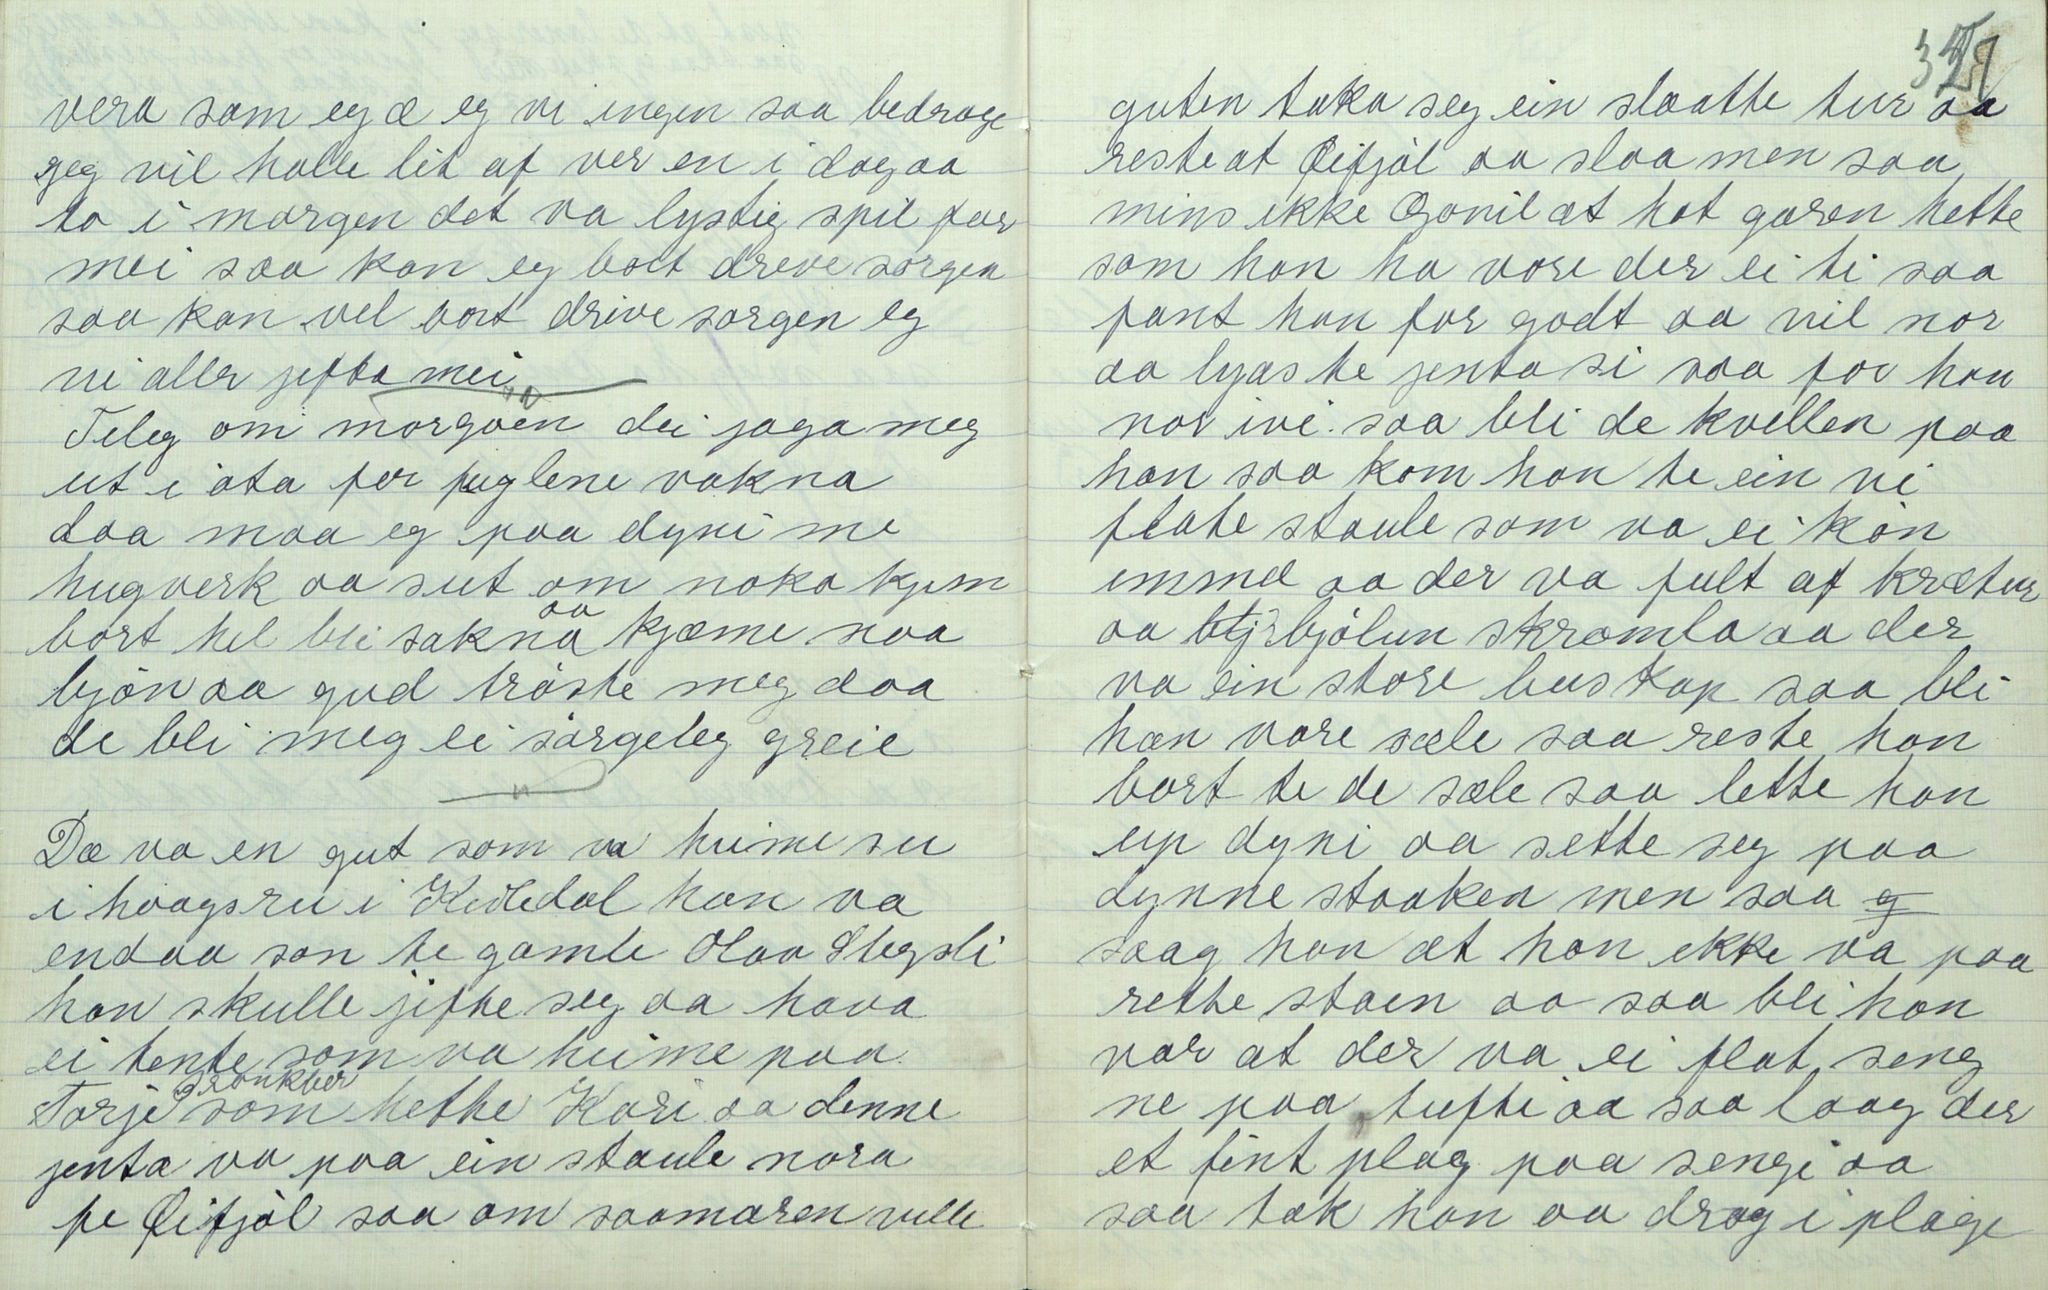 vera som eg æ eg vi ingen saa bedrage
jeg vil halle lit af ver en i dag aa
to i morgen det va lystig spil for
mei saa kan eg bort dreve sorgen
saa kan vel bort drive sorgen eg
vi aller jefta mei
Tileg om morgoen dei jaga meg
ut i ota før fuglene vakna
daa maa eg paa dyni me
hugverk aa sut om noka kjem
bort hel bli sakna aa kjæme noa
bjøn aa gud trøste meg daa
de bli meg ei sørgeleg greie
Dæ va en gut som va heime su
i haagsru i Kviledal han va
endaa son te gamle Olaa Slegsli
han skulle jifte seg aa hava
ei tente som va heime paa
Tarje Grønkber som hette Kari aa denne
jenta va paa ein staule nora
pe Øifjøl saa om saamaren ville
327
guten taka seg ein slaatte tur aa
reste at Øifjøl aa slaa men saa
mins ikke Gonil at hot garen hette
som han ha vore der ei ti saa
fant han for godt aa vil nor
aa lyas te jenta si saa for han
nor ivi saa bli de kvellen paa
han saa kom han te ein vi
flate staule som va ei køn
immel aa der va fult af krætur
aa bjølun skramla aa der
va ein store buskap saa bli
han vare sæle saa reste han
bort te de sæle saa lette han
up dyni aa sette seg paa
dynne staaken men saa
saag han at han ikke va paa
rette staen aa saa bli han
var at der va ei flat seng
ne paa tufti aa saa laag der
et fint plag paa sengi aa
saa tok han aa drog i plage